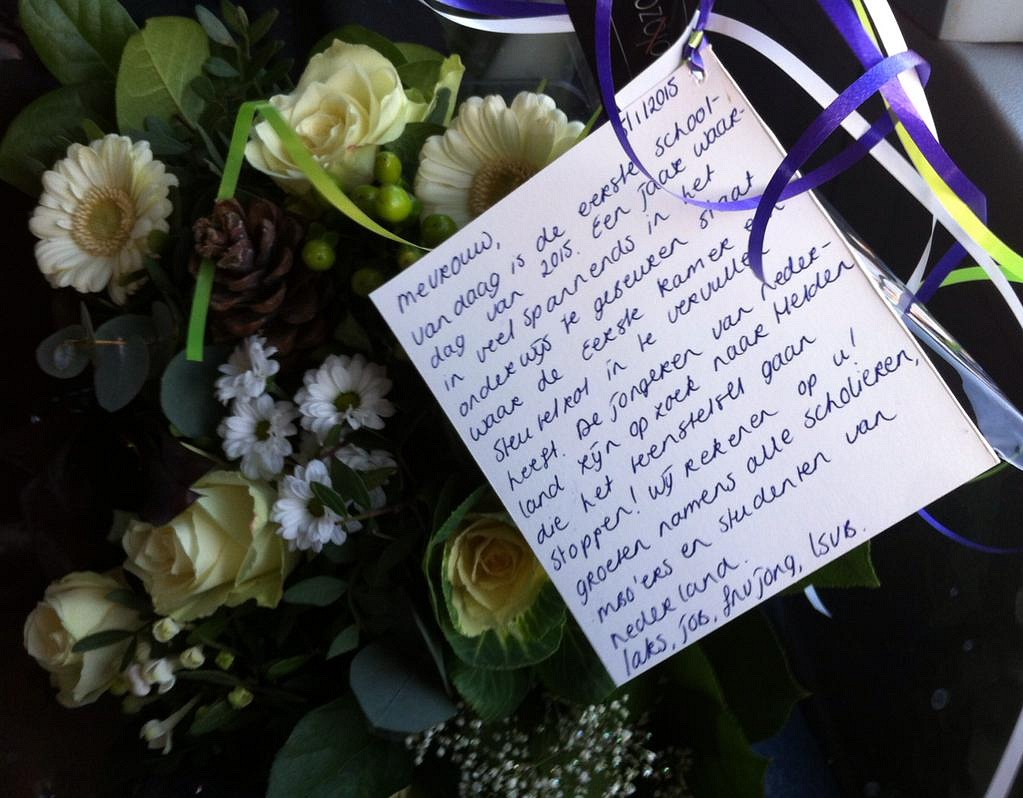 5/1/2015
mevrouw,
vandaag is de eerste school-
dag van 2015. Een jaar waar-
in veel spannends in het
onderwijs te gebeuren staat
waar de Eerste Kamer een
sleutelrol in te vervullen
heeft. De jongeren van Neder-
land zijn op zoek naar Helden
die het leenstelsel gaan
stoppen! Wij rekenen op u!
groeten namens alle scholieren,
mbo'ers en studenten van
nederland.
laks, job, fnvjong, lsvb.